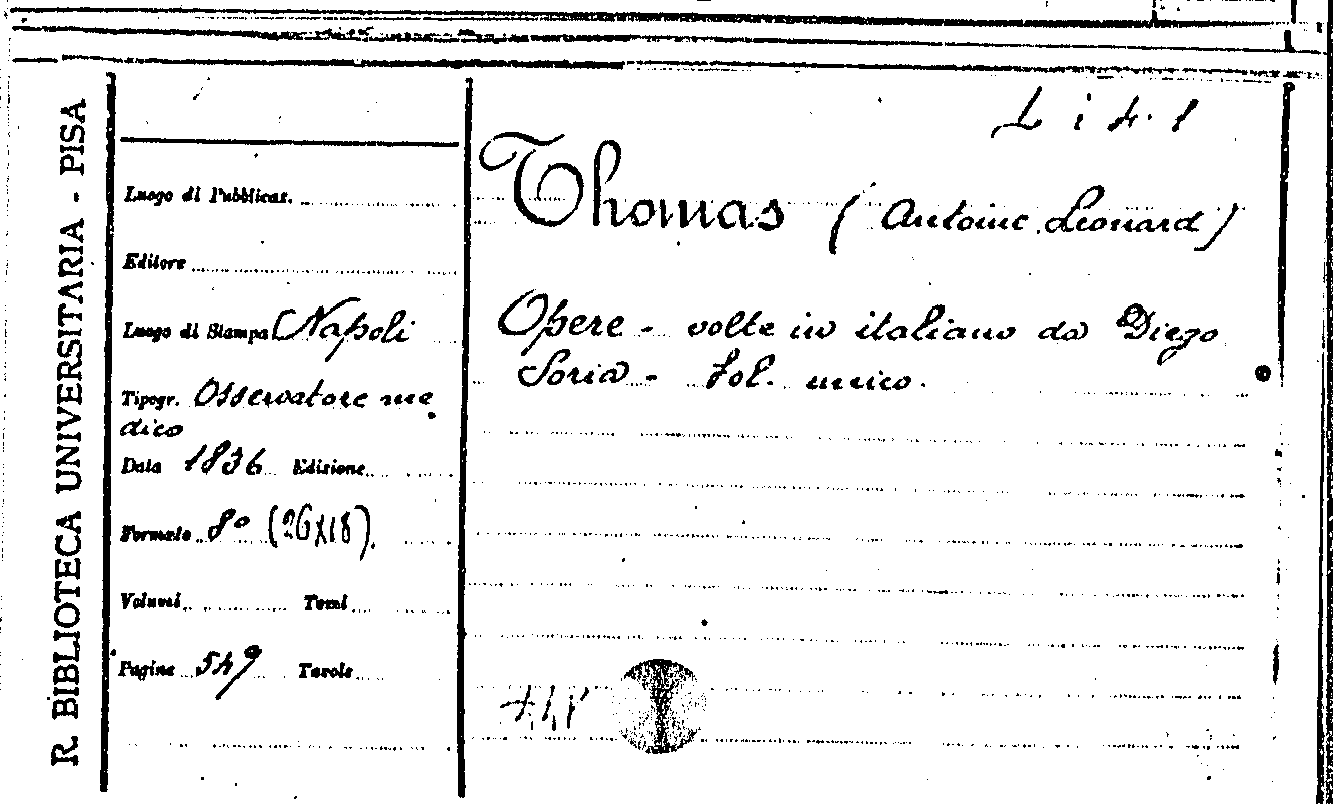 R. BIBLIOTECA UNIVERSITARIA - PISA
Luogo di Pubblicaz.
Editore
Luogo di Stampa Napoli
Tipogr. Osservatore me
dico
Data 1836 Edizione
Formato 8° (26X18).
Volumi Tomi
Pagine 549 Tavole
Thomas (Antoine Leonard)
Opere - volte in italiano da Diego
Soria - Vol. unico.